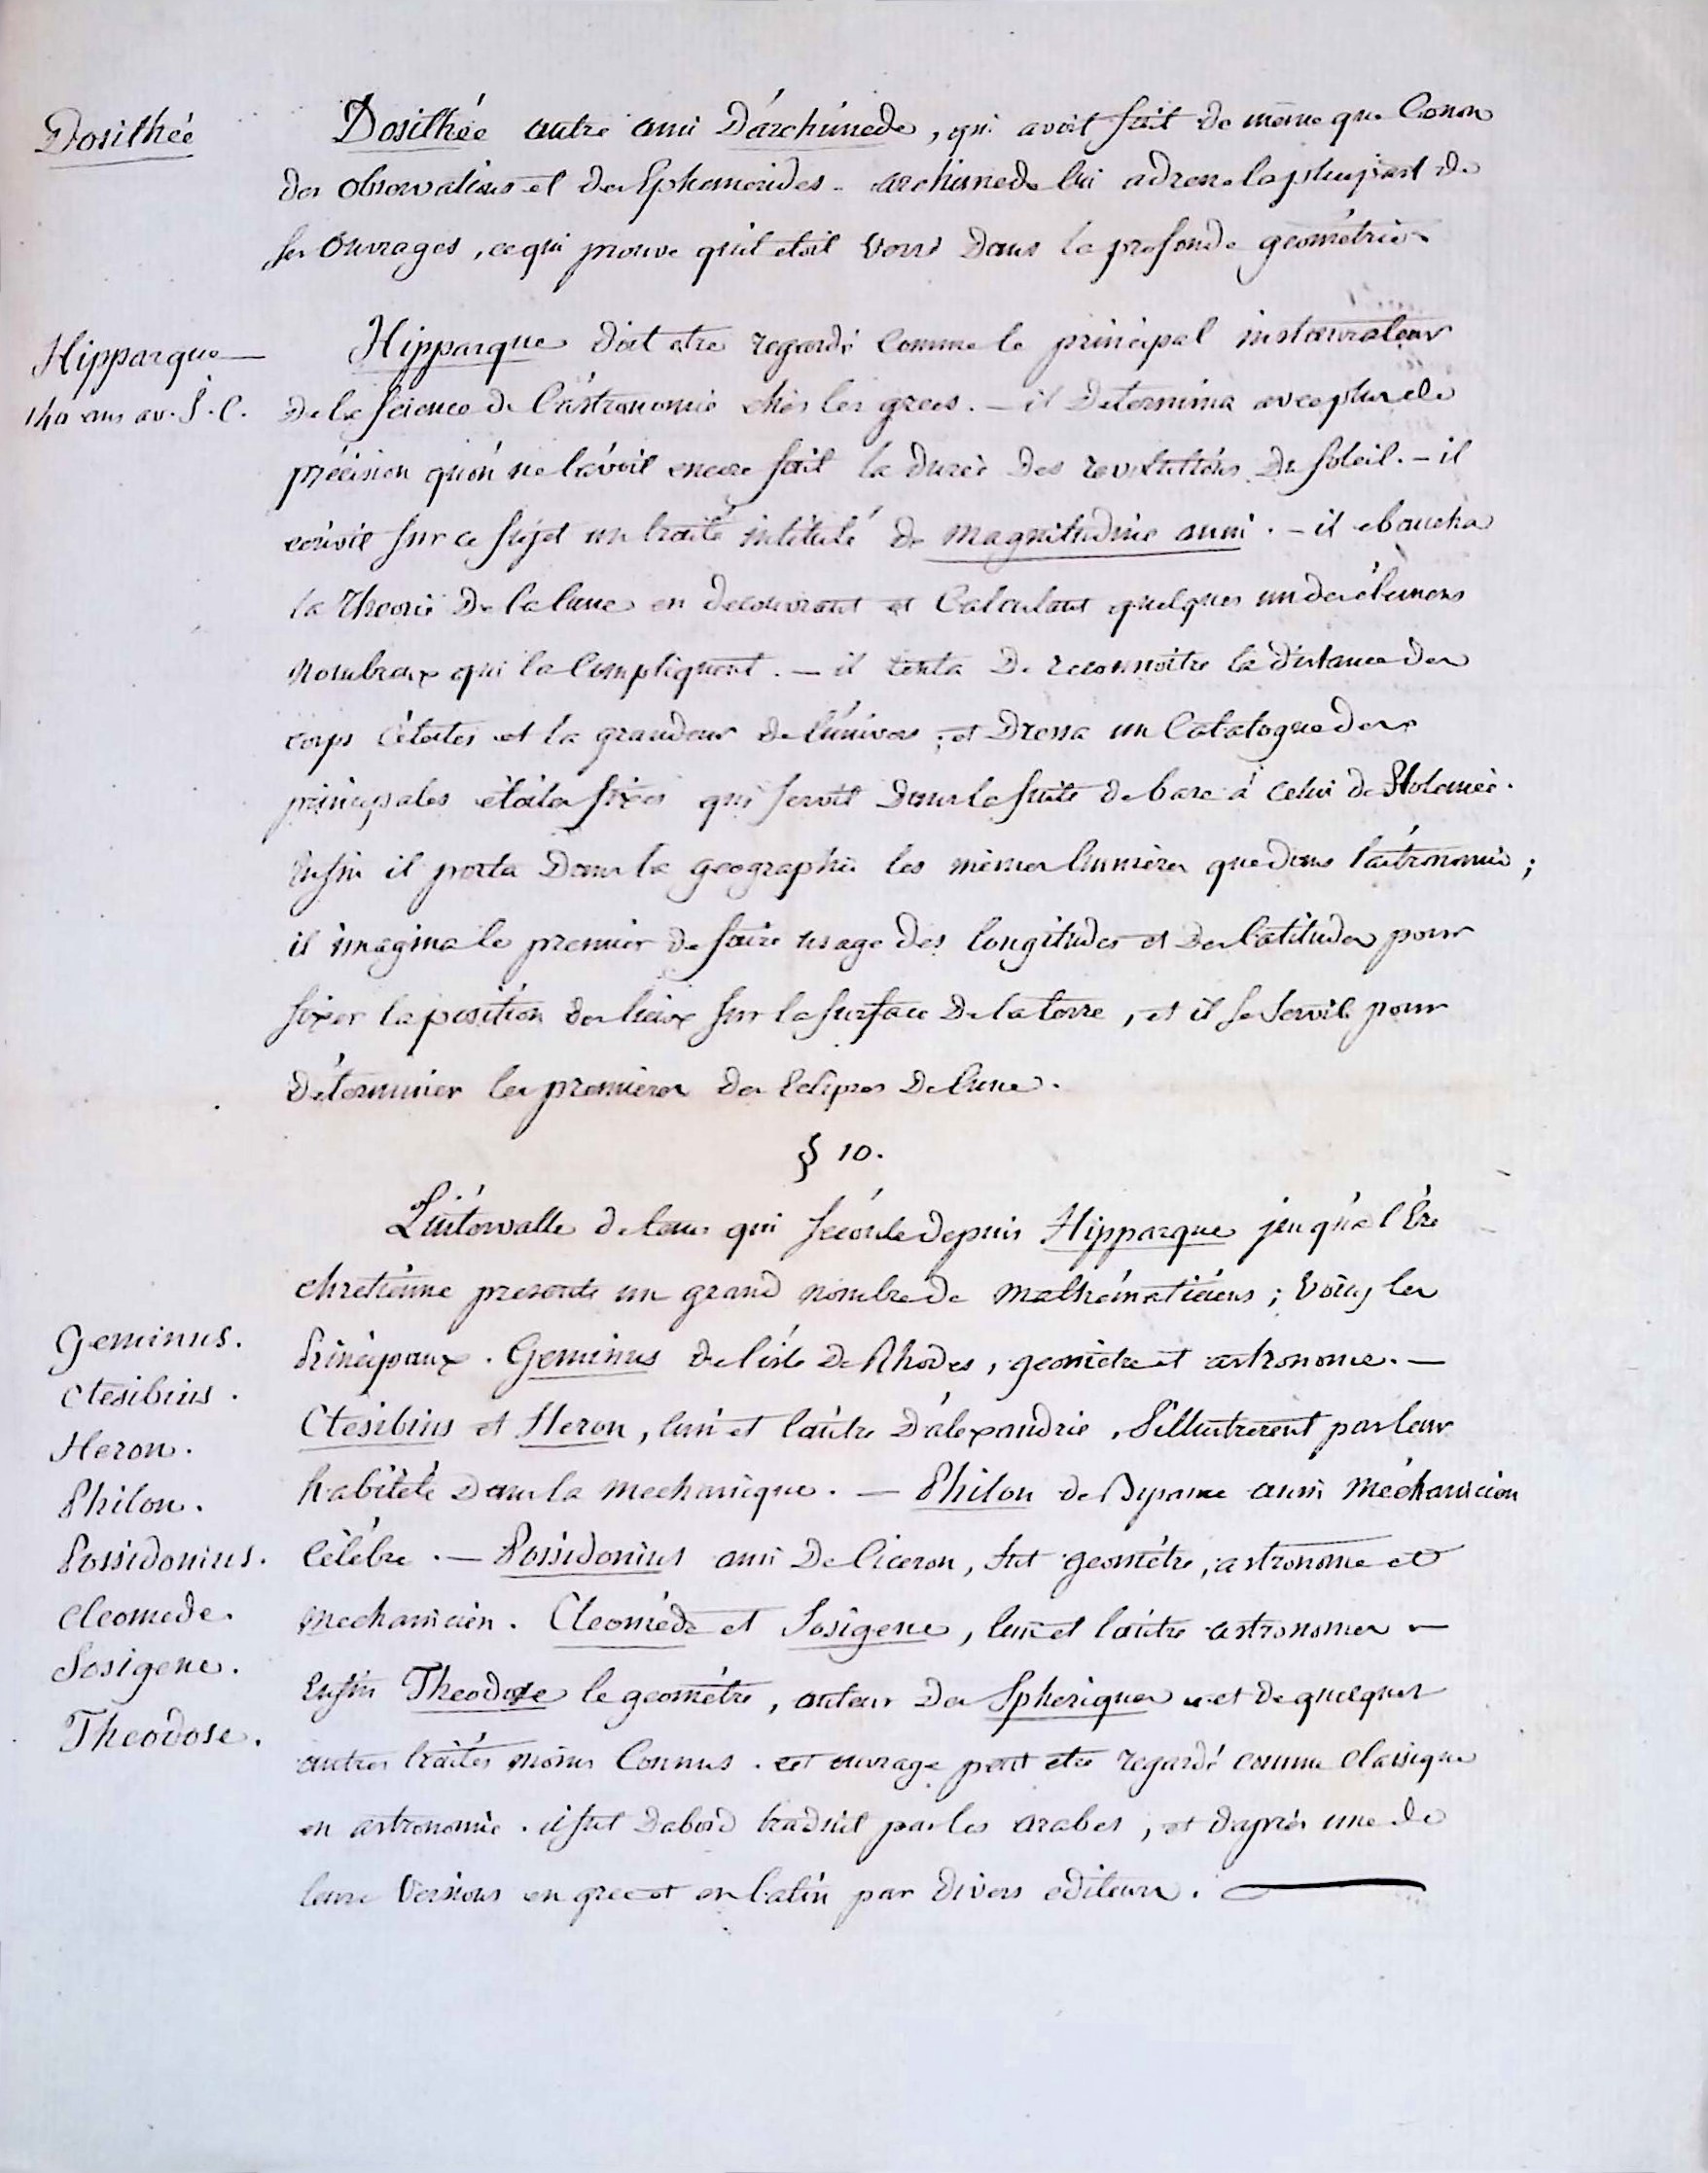 Dosithée
Dosithée autre ami D'archimede, qui avoit fait de même que Conon
des observations et des Ephemerides. archimede lui adresse la pluspart de
ses Ouvrages, ce qui prouve qu'il etoit versé Dans la profonde geométrie
Hipparque
140 ans av. J. C.
Hipparque doit etre regardé comme le principal instaurateur
De la science de l'astronomie chés les grecs. — il Determina avec plus de
précision qu'on ne l'avoit encore fait la durée des revolutions Du soleil. — il
ecrivit sur ce sujet un traité intitulé de magnitudine anni. — il ebaucha
la Theorie De la lune en decouvrant et Calculant quelques uns des élemens
nombreux qui la Compliquent. — il tenta De reconnoitre la distance des
corps célestes et la grandeur de l'univers; et Dressa un Catalogue des
principales étoiles fixes qui servit Dans la suite de base à celui de Ptolemée.
Enfin il porta Dans la geographie les mêmes lumieres que dans l'astronomie;
il imagina le premier de faire usage des longitudes et Des latitudes pour
fixer la position des lieux sur la surface De la terre, et il se servit pour
Déterminer les premieres des Eclipses De lune.
§ 10.
L'intervalle de tems qui s'écoule depuis Hipparque jusqu'a l'Ere
chretienne presente un grand nombre de mathématiciens; Voicy les
Geminus.
Principaux. Geminus de l'isle De Rhodes, geometre et astronome. —
Ctesibius.
Ctesibius et Heron, l'un et l'autre D'alexandrie, s'illustrerent par leur
Heron.
habileté Dans la mechanique. — Philon de Bysance aussi Méchanicien
Philon.
Célébre. — Possidonius ami De Ciceron, fut geométre, astronome et
Possidonius.
mechanicien. Cleoméde et Sosigene, l'un et l'autre astronomes —
Cleomede.
Sosigene.
Enfin Theodose le geométre, auteur Des Spheriques et de quelques
Theodose.
autres traités moins Connus. cet ouvrage peut etre regardé comme classique
en astronomie. il fut D'abord traduit par les arabes, et d'après une de
leurs Versions en grec et en latin par divers editeurs.